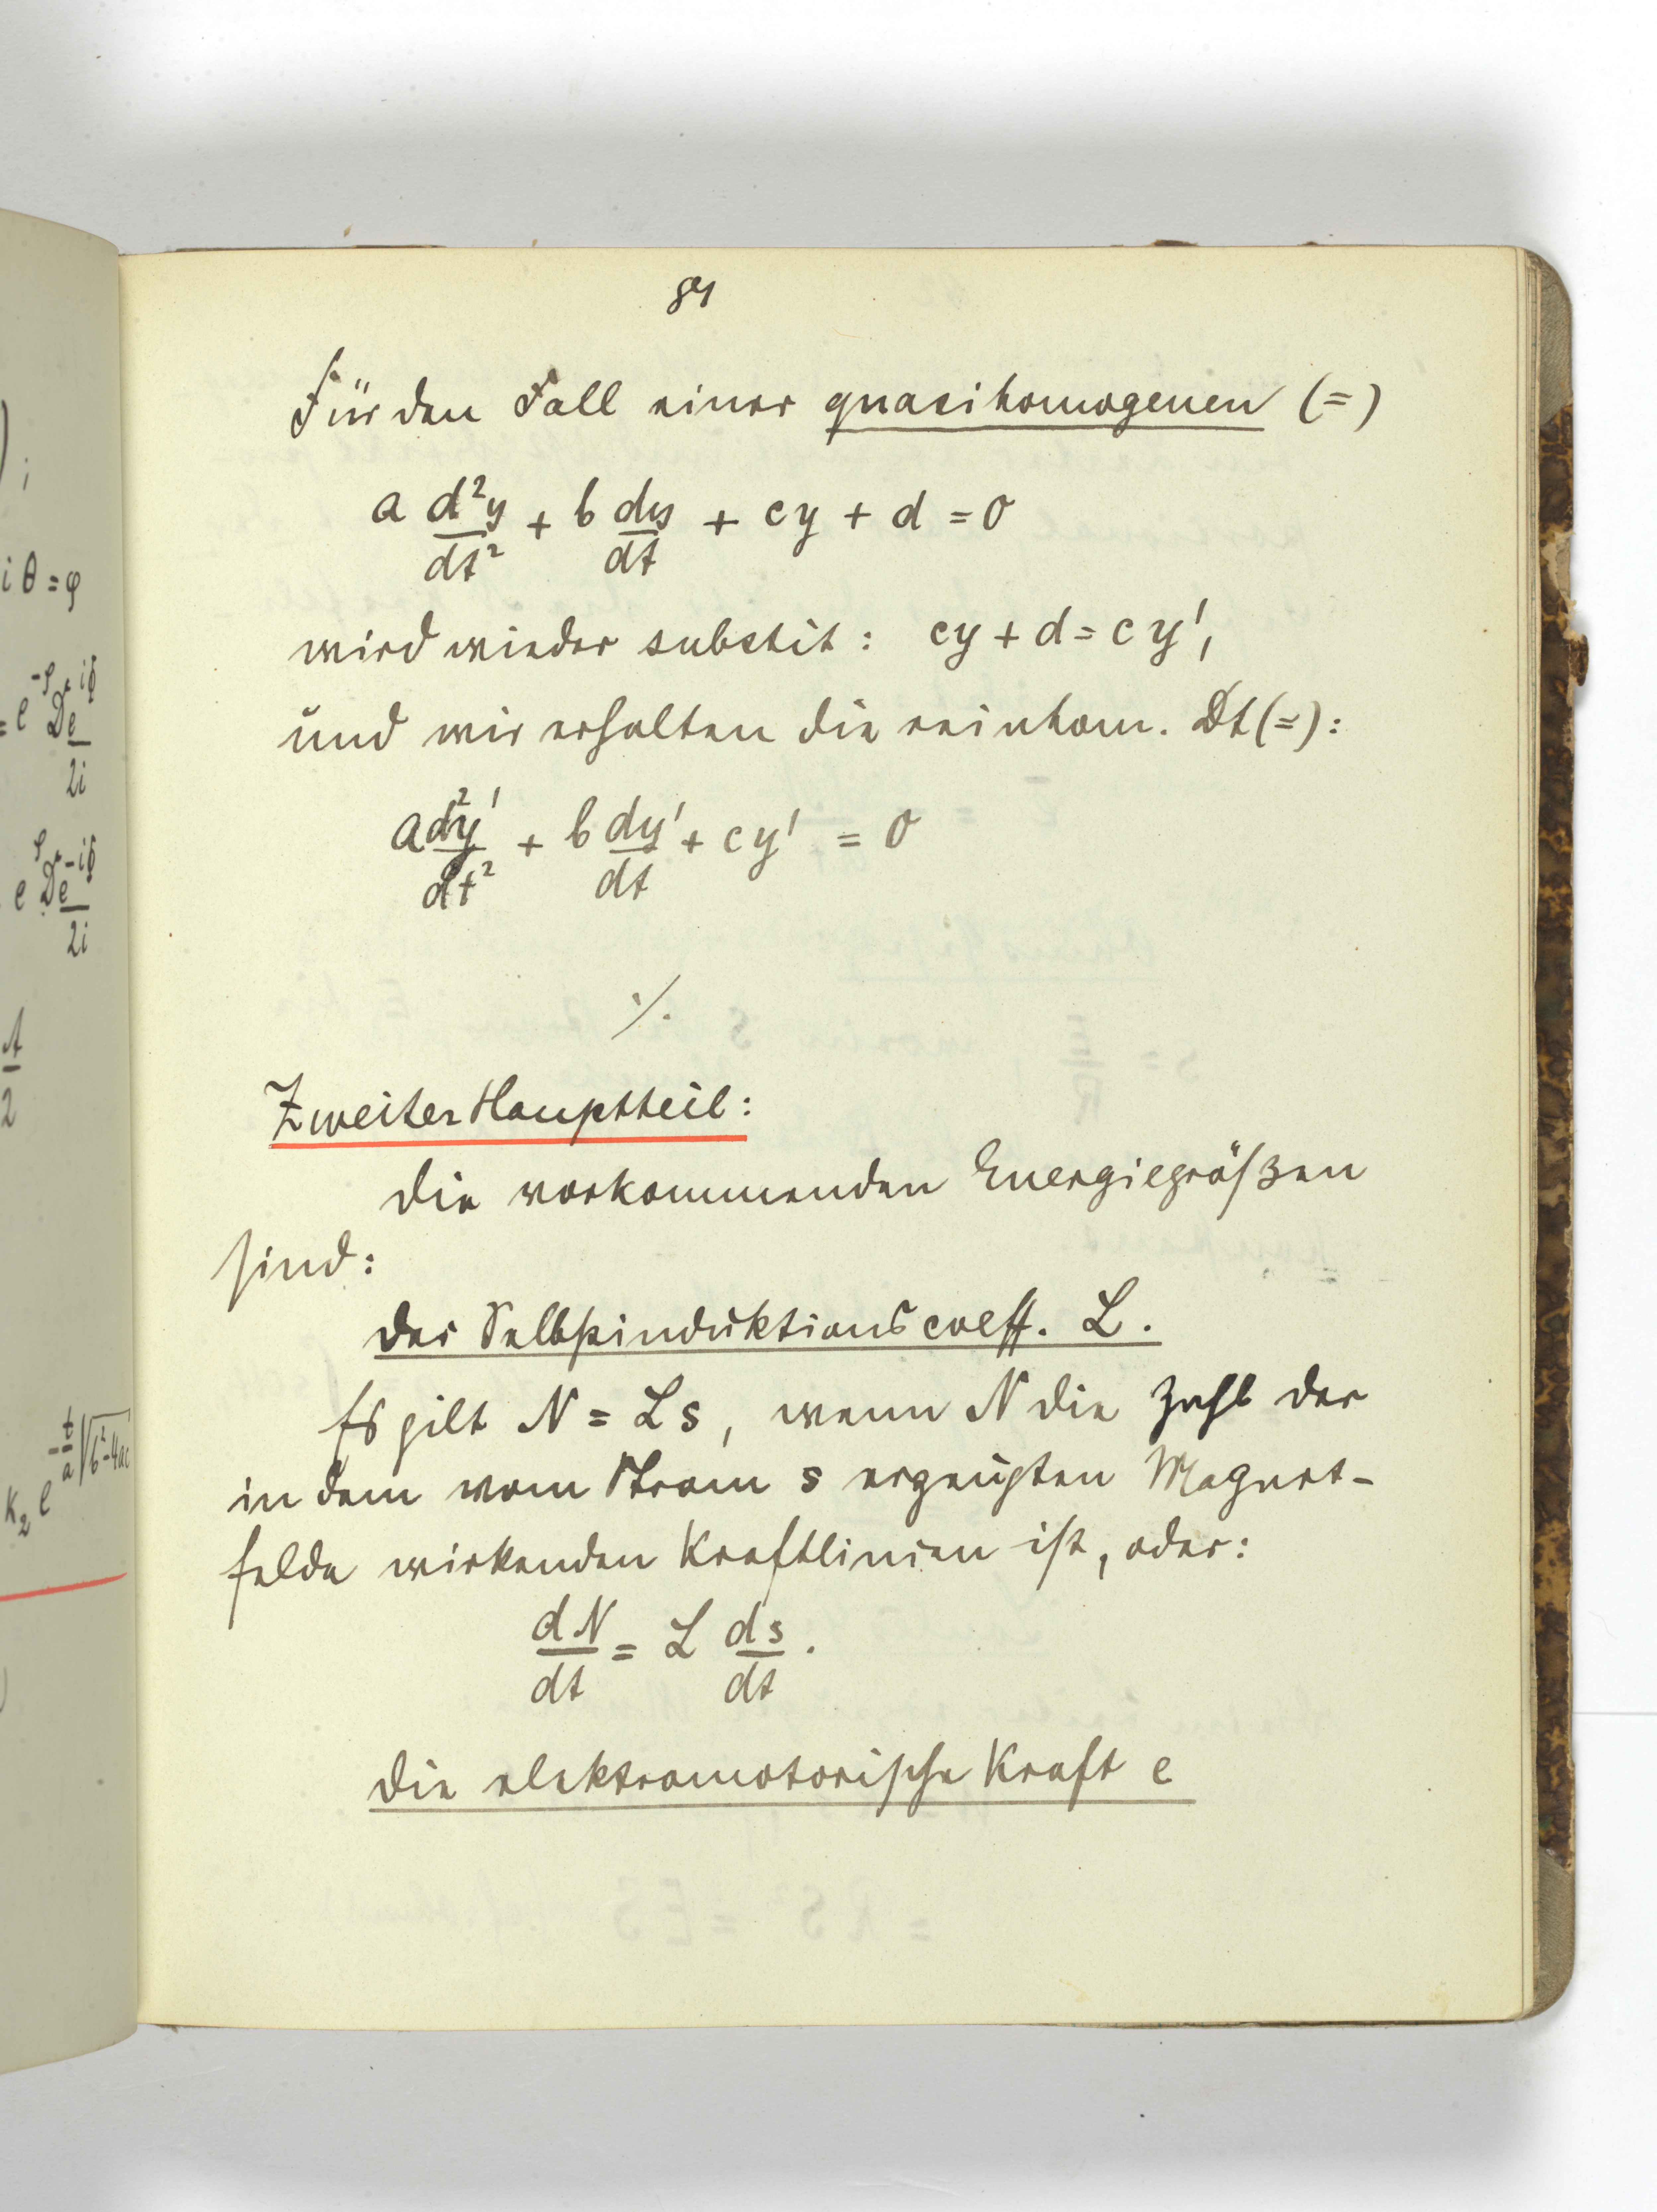 Für den Fall einer quasihomogenen (=)
a d²y/dt² + b dy/dt + cy + d = 0
wird wieder substit: cy + d = cy',
und wir erhalten die reinhom. Dt(=):
a d²y'/dt² + b dy'/dt + cy' = 0
·/.
Zweiter Hauptteil:
Die vorkommenden Energiegrößen
sind:
Der Selbstinduktionscoeff. L.
Es gilt N = Ls, wenn N die Zahl der
in dem vom Strom s erzeugten Magnet-
felde wirkenden Kraftlinien ist, oder:
dN/dt = L ds/dt.
Die elektromotorische Kraft e
i θ = φ
2i
2i